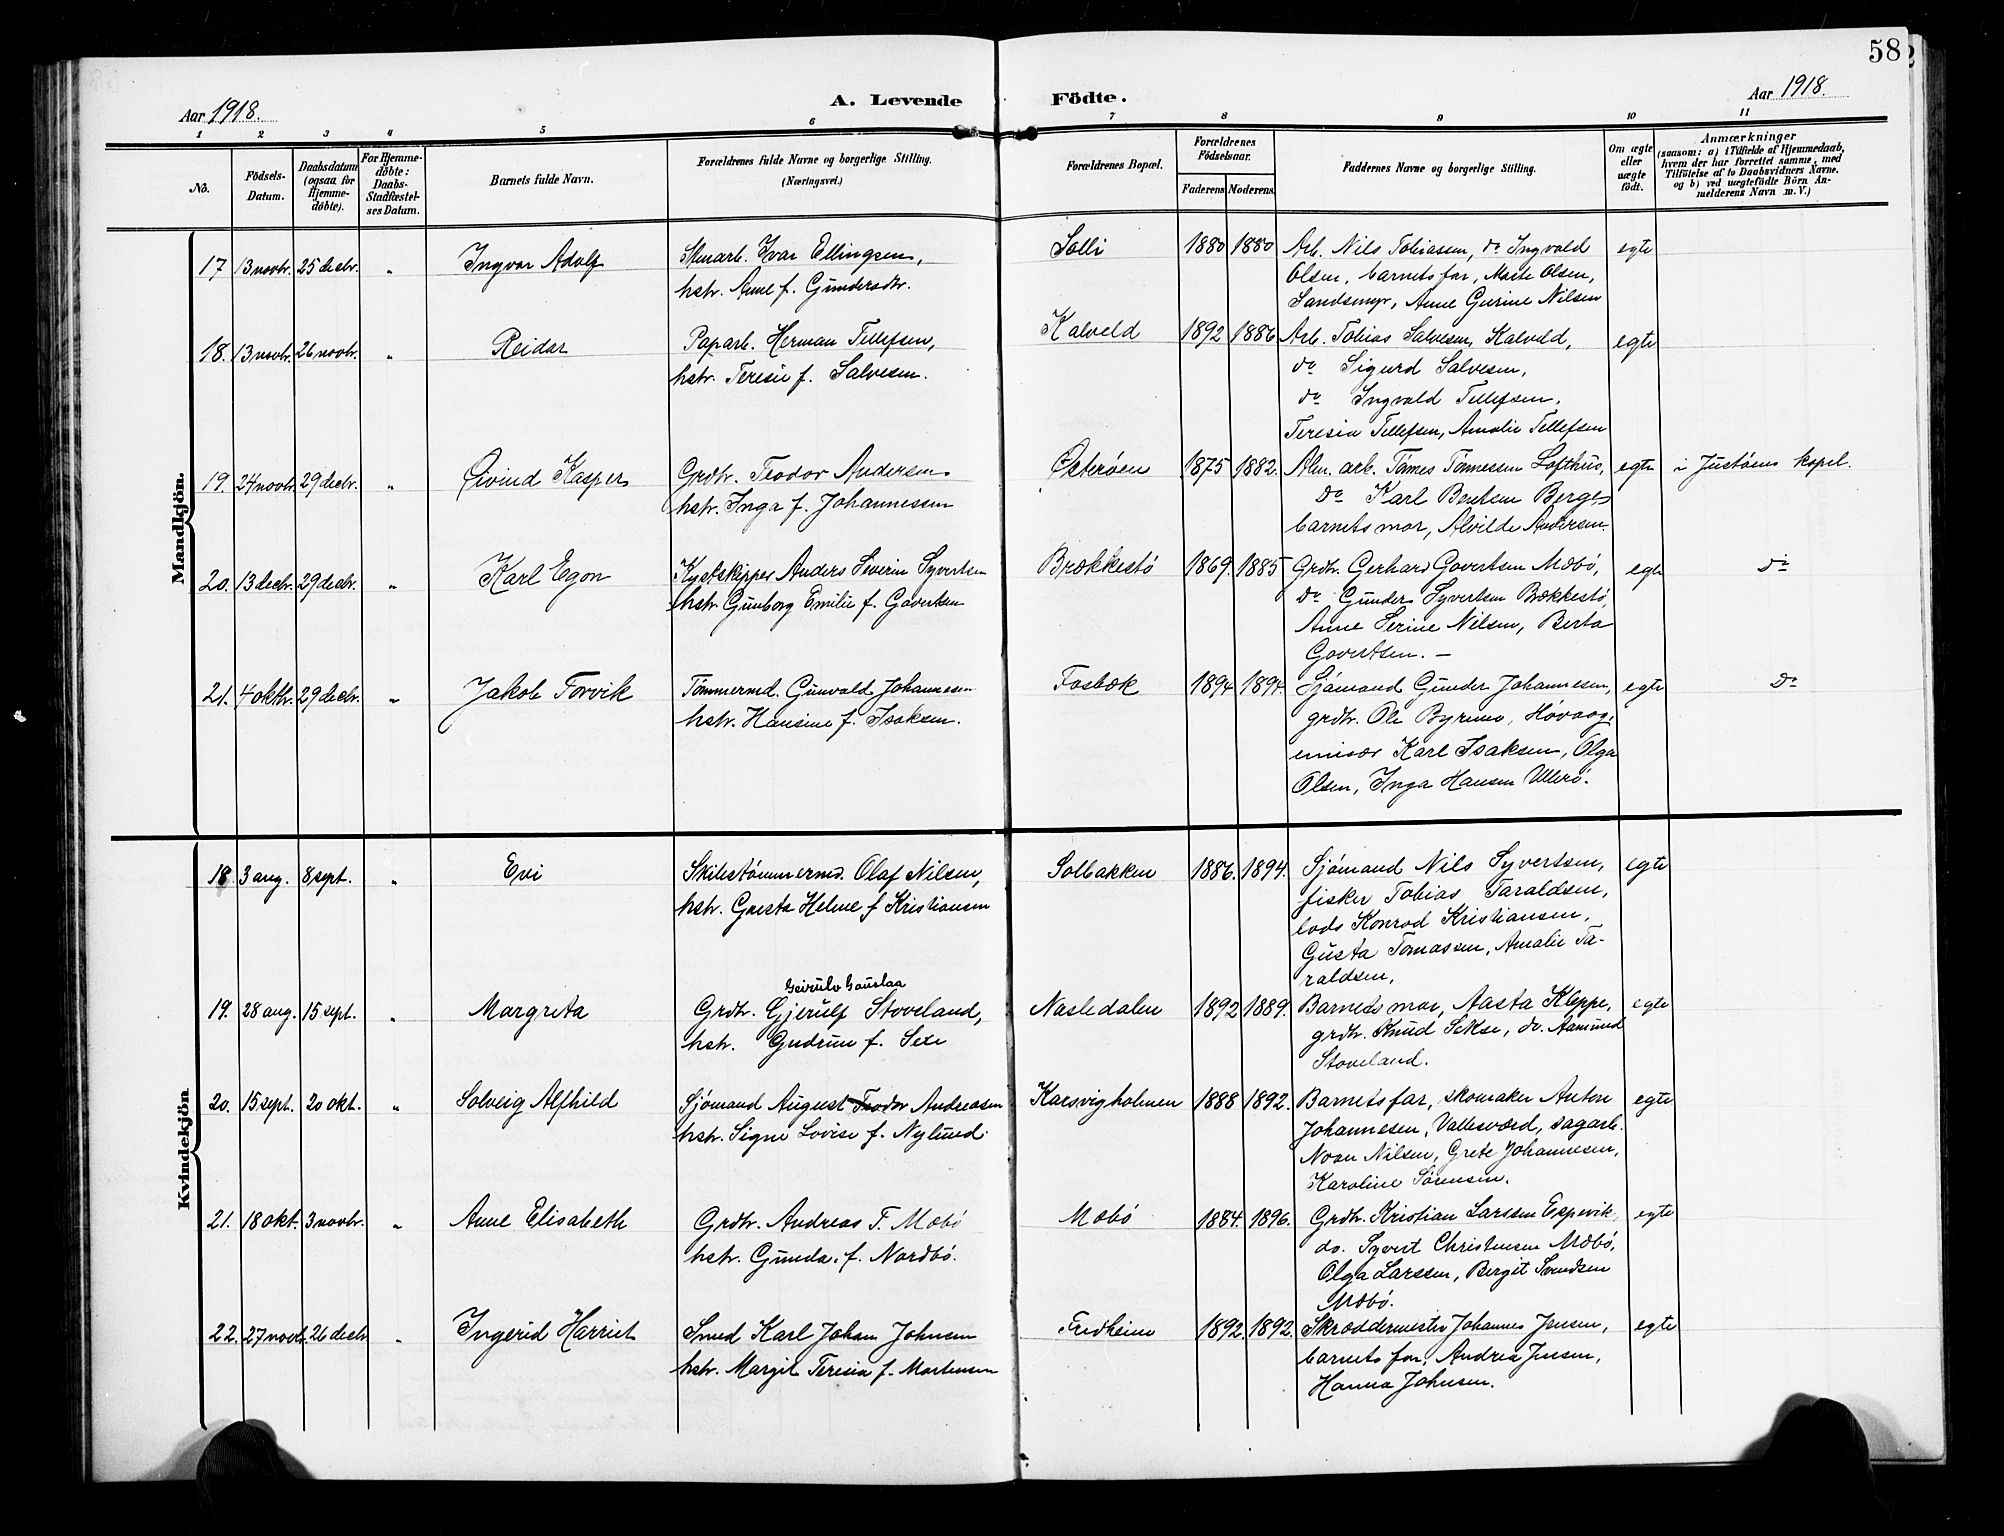 58
Aar 1918. A. Levende Födte. Aar 1918.
1 2 3 4 5 6 7 8 9 10 11
No.
Födsels-
Datum.
Daabsdatum
(ogsaa for
Hjemme-
döbte).
For Hjemme-
döbte:
Daabs-
Stadfæstel-
ses Datum.
Barnets fulde Navn.
Forældrenes fulde Navne og borgerlige Stilling.
(Næringsvei.)
Forældrenes Bopæl.
Forældrenes
Födselsaar.
Faderens. Moderens.
Faddernes Navne og borgerlige Stilling.
Om ægte
eller
uægte
födt.
Anmærkninger
(saasom: a) i Tilfælde af Hjemmedaab,
hvem der har forrettet samme, med
Tilföielse af to Daabsvidners Navne,
og b) ved uægtefödte Börn An-
melderens Navn m. V.)
Mandkjön.
17 13 novbr. 25 decbr. " Ingvar Adolf Stenarb. Ivar Ellingsen, Solli 1880 1880 Arb. Nils Tobiassen, do Ingvald egte
hstr. Anne f. Gundersdtr. Olsen, barnets far, Marte Olsen,
Sandsmyr, Anne Gurine Nilsen
18. 13 novbr. 26 novbr. " Reidar Paparb. Herman Tellefsen, Kalveld 1892 1886 Arb. Tobias Salvesen, Kalveld, egte
hstr. Teresie f. Salvesen. do Sigurd Salvesen,
do Ingvald Tellefsen,
Teresia Tellefsen, Amalie Tellefsen
19. 24 novbr. 29 decbr. " Øivind Kasper Grdbr. Teodor Andersen Østerøen 1875 1882. Alm. arb. Tømes Tønnessen Lofthus, egte i Justøens kapel.
hstr. Inga f. Johannessen do Karl Bentsen Berge,
barnets mor, Alvilde Andersen.
20. 13 decbr. 29 decbr. " Karl Egon Kystskipper Anders Severin Syvertsen Brækkestö 1869. 1885 Grdbr. Gerhard Govertsen Mæbö, egte do
hstr. Gunborg Emilie f. Govertsen do Gunder Syvertsen Brækkestö,
Anne Serine Nilsen, Berta
Govertsen. —
21. 4 oktbr. 29 decbr. " Jakob Torvik Tømmermd. Gunvald Johannesen Fosbæk 1894 1894. Sjómand Gunder Johannesen, egte do
hstr. Hansine f. Isaksen. grdbr. Ole Byremo, Høvaag,
emisær Karl Isaksen, Olga
Olsen, Inga Hansen Ulerö.
Kvindekjön
18 3 aug. 8 sept. " Evi Skibstømmermd. Olaf Nilsen, Solbakken 1886. 1894. Sjómand Nils Syvertsen, egte
hstr. Gusta Helene f. Kristiansen fisker Tobias Taraldsen,
lods Konrad Kristiansen,
Gusta Tomassen, Amalie Ta-
raldsen,
Geirulv Gauslaa
19. 28 aug. 15 sept. " Margreta Grdbr. Gjerulf Stoveland, Nasledalen 1892 1889. Barnets mor, Aasta Kleppe, egte
hstr. Gudrun f. Sexe grdbr. Knud Sekse, do. Aamund
Stoveland.
20. 15 sept. 20 okt. " Solveig Alfhild Sjómand August Teodor Andreasen Karsvigholmen 1888 1892. Barnets far, skomaker Anton egte
hstr. Signe Lovise f. Nylund. Johannesen, Vallesværd, sagarb.
Noan Nilsen, Grete Johannesen,
Karoline Sørensen.
21. 18 okt. 3 novbr. " Anne Elisabeth Grdbr. Andreas T. Mæbö Mæbö 1884. 1896. Grdbr. Kristian Larssen Espevik, egte
hstr. Gunda. f. Nordbö. do. Syvert Christensen Mæbö,
Olga Larssen, Bergit Svendsen
Mæbö.
22. 27 novbr. 26 decbr " Ingerid Harriet Smed Karl Johan Johnsen Fredheim 1892. 1892. Skræddermester Johannes Jensen, egte
hstr. Margit Teresia f. Mortensen barnets far, Andrea Jensen,
Hanna Johnsen.